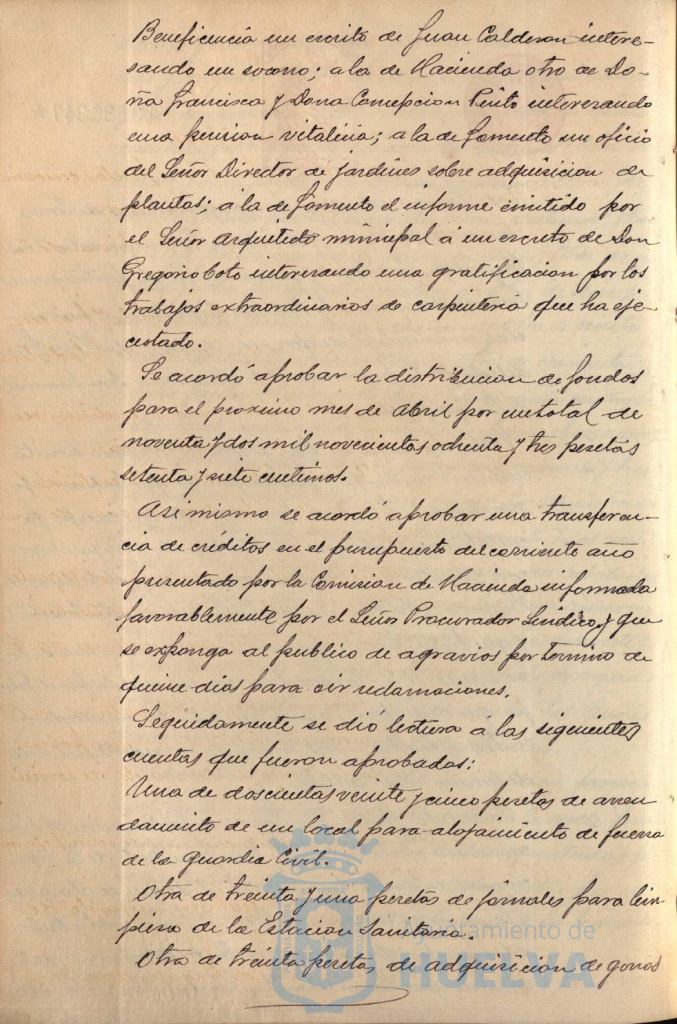 Beneficencia un escrito de Juan Calderon intere-
sando un socorro; a la de Hacienda otro de Do-
ña Francisca y Dona Concepcion Pinto interezando
una pension vitalicia; a la de fomento un oficio
del Señor Director de jardines sobre adquisicion de
plantas; á la de fomento el informe emitido por
el Señor Arquitecto municipal á un escreto de Don
Gregorio Coto interezando una gratificacion por los
trabajos extraordinarios de carpinteria que ha eje-
cutado.
Se acordó aprobar la distribucion de fondos
para el proximo mes de Abril por un total de
noventa y dos mil novecientas ochenta y tres pesetas
setenta y siete centimos.
Asi mismo se acordó aprobar una transferen-
cia de créditos en el presupuesto del corriente año
presentado por la Comision de Hacienda informada
favorablemente por el Señor Procurador Sindico, y que
se exponga al publico de agravios por termino de
quince dias para oir reclamaciones.
Seguidamente se dió lectura á las siguientes
cuentas que fueron aprobadas:
Una de doscientas veinte y cinco pesetas de arren
damiento de un local para alojamiento de fuerza
de la guardia Civil.
Otra de treinta y una pesetas de jornales para lim-
pieza de la Estacion Sanitaria.
Otra de treinta pesetas de adquisicion de gorros
Ayuntamiento de
HUELVA